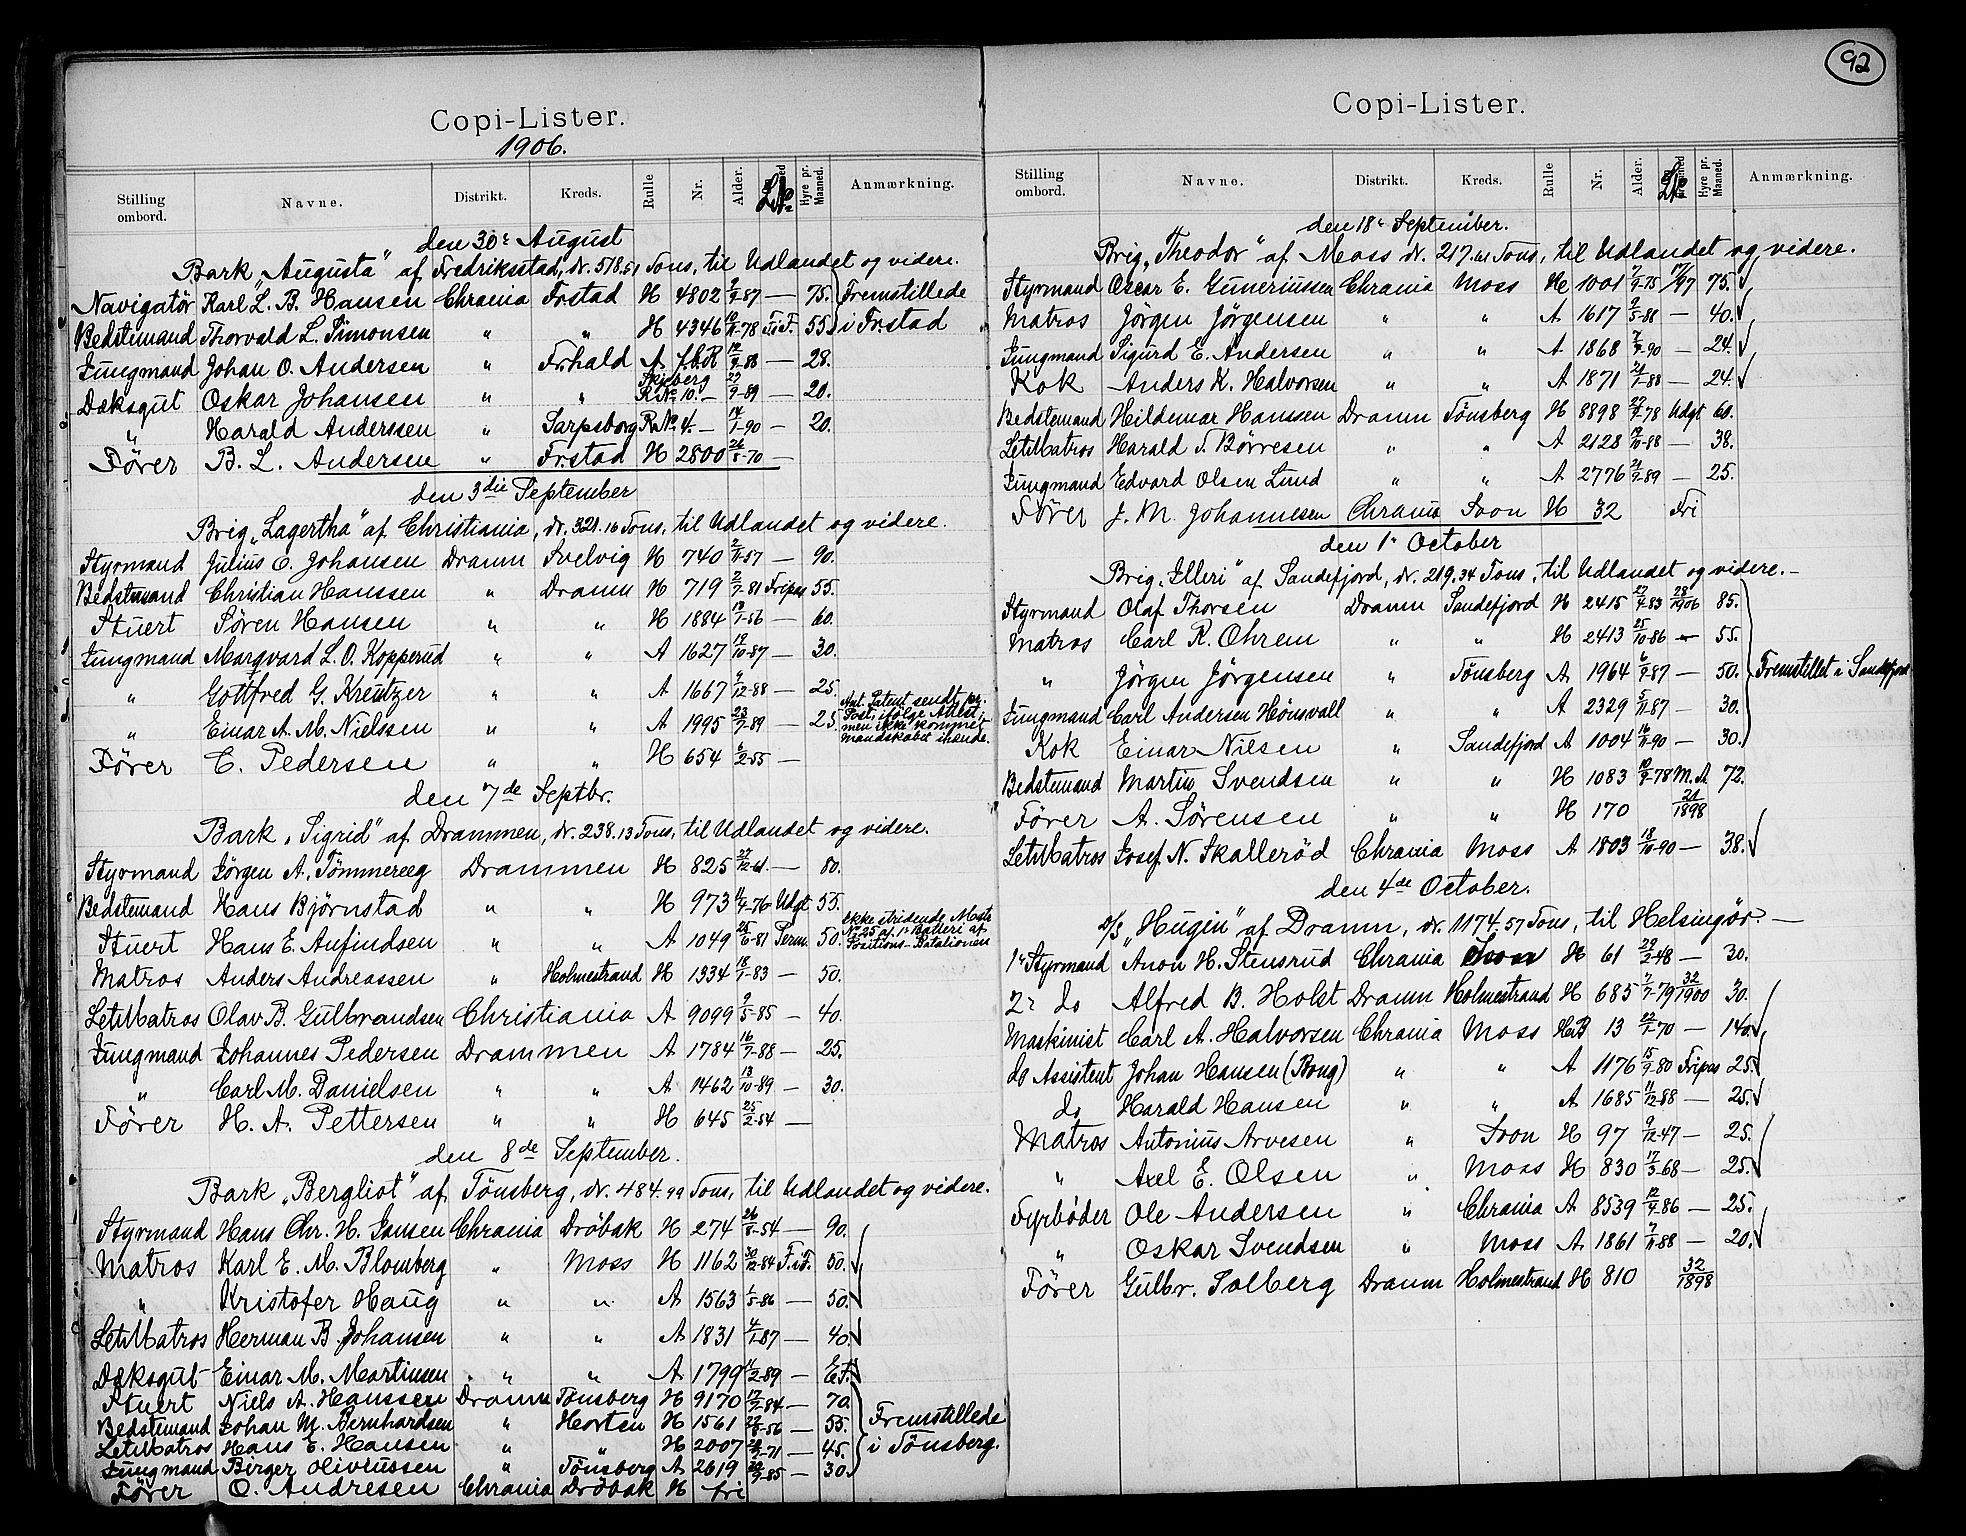 92
Copi-Lister.
1906.
Stilling ombord. Navne. Distrikt. Kreds. Rulle Nr. Alder. Hyre pr. Maaned. Anmærkning.
den 30' August
Bark "Augusta" af Fredriksstad, dr. 518.51 Tons, til Udlandet og videre.
Navigatör Karl L. B. Hansen Chrania Frstad H 4802 87 — 75. Fremstillede
Bedstemand Thorvald L. Simonsen " " H 4346 78 55. i Frstad
Jungmand Johan O. Andersen " Frhald A 88 — 28.
Dæksgut Oskar Johansen " " Skjeberg R No 10. — 89 — 20.
" Harald Anderssen " Sarpsborg R No 4. — 14/1-90 — 20.
Förer B. L. Andersen " Frstad H 2800 70 —
den 3die September
Brig "Lagertha" af Christiania, dr. 321.16 Tons, til Udlandet og videre.
Styrmand Julius C. Johansen Dramn Svelvig H 740 2/11-57 — 90.
Bedstemand Christian Hanssen " Dramn H 719 81 Fripas 55.
Stuert Søren Hansen " " H 1884 56 — 60.
Jungmand Marqvard L. O. Kopperud " " A 1627 19/10-87 — 30.
" Gottfred G. Kreutzer " " A 1667 9/12-88 — 25.
" Einar A. M. Nielssen " " A 1995 23/7-89 — 25. Ant. Patent sendt pr. Post, ifølge Attest, men ikke kommet mandskabet ihænde.
Förer C. Pedersen " " H 654 6/2-55 —
den 7de Septbr.
Bark "Sigrid" af Drammen, dr. 238.13 Tons, til Udlandet og videre.
Styrmand Jörgen A. Tömmereeg Drammen H 825 27/12-61 — 80.
Bedstemand Hans Bjørnstad " " H 973 11/4-76 Udgt 55.
Stuert Hans E. Anfindsen " " A 1049 25/6-81 50. Ikke stridende No 25 af 1' Batteri af Positions-Batalionen
Matros Anders Andreassen " Holmestrand H 1334 18/1-83 — 50.
Let Matros Olav B. Gulbrandsen Christiania A 9099 2/5-85 — 40.
Jungmand Johannes Pedersen Drammen A 1784 88 — 25.
" Carl M. Danielsen " " A 1462 13/10-89 — 30.
Förer H. A. Pettersen " " H 645 25/2-54 —
den 8de September.
Bark "Bergliot" af Tönsberg, dr. 484.99 Tons, til Udlandet og videre.
Styrmand Hans Chr. H. Jansen Chrania Dröbak H 274 54 — 90.
Matros Karl E. M. Blomberg " Moss H 1162 30/12-84 50.
" Kristofer Haug " " A 1563 86 — 50.
Let Matros Herman B. Johansen " " A 1831 4/1-87 — 40.
Dæksgut Einar M. Martinsen " " A 1799 11/2-89 —
Stuert Niels A. Hanssen Dramn Tönsberg H 9170 84 — 70.
Bedstemand Johan M. Bernhardsen " Horten H 1561 56 — 55. Fremstillede
Let Matros Hans E. Hansen " " H 2007 71 — 45. i Tönsberg.
Jungmand Birger Oliviussen " Tönsberg A 2619 85 — 30.
Förer O. Andresen Chrania Dröbak H fri
Copi-Lister.
Stilling ombord. Navne. Distrikt. Kreds. Rulle Nr. Alder. Hyre pr. Maaned. Anmærkning.
den 18' September.
Brig "Theodor" af Moss dr. 217.61 Tons, til Udlandet og videre.
Styrmand Oscar E. Guneriussen Chrania Moss H 1001 75 75.
Matros Jörgen Jörgensen " " A 1617 88 — 40.
Jungmand Sigurd E. Andersen " " A 1868 90 — 24.
Kok Anders K. Halvorsen " " A 1871 88 — 24.
Bedstemand Hildemar Hanssen Dramn Tønsberg H 8898 78 Udgt 60.
Let Matros Harald T. Børresen " " A 2128 88 — 38.
Jungmand Edvard Olsen Lund " " A 2776 89 — 25.
Förer J. M. Johannesen Chrania Soon H 32 Fri
den 1' October
Brig "Illeri" af Sandefjord, dr. 219.34 Tons, til Udlandet og videre. —
Styrmand Olaf Thorsen Dramn Sandefjord H 2415 83 28/1906 85.
Matros Carl R. Ohrem " " H 2413 25/10-86 — 55.
" Jörgen Jörgensen " Tönsberg A 1964 87 — 50. Fremstillet i Sandefjord
Jungmand Carl Andersen Hönsvall " " A 2329 5/11-87 — 30.
Kok Einar Nilsen " Sandefjord A 1004 16/11-90 — 30.
Bedstemand Martin Svendsen " " H 1083 78 M.A. 72.
Förer A. Sörensen " " H 170 21/1898
Let Matros Josef N. Skalleröd Chrania Moss A 1803 18/10-90 — 38.
den 4de October.
D/S "Hugin" af Dramn, dr. 1174.57 Tons, til Helsingör. —
1' Styrmand Anon H. Stensrud Chrania Soon H 61 29/2-48 — 30.
2' do Alfred B. Holst Dramn Holmestrand H 685 7/7-79 32/1900 30.
Maskinist Carl A. Halvorsen Chrania Moss H.B 13 22/1-70 — 140.
do Assistent Johan Hansen (Bong) " " A 1176 80 Fripas 25.
do Harald Hansen " " A 1685 11/12-88 — 25.
Matros Antonius Arvesen " Soon H 97 9/12-47 — 25.
" Axel E. Olsen " Moss H 830 17/3-68 — 25.
Fyrböder Ole Andersen " Chrania A 8539 86 — 25.
" Oskar Svendsen " Moss A 1861 7/11-88 — 20.
Förer Gulbr. Solberg Dramn Holmestrand H 810 32/1898